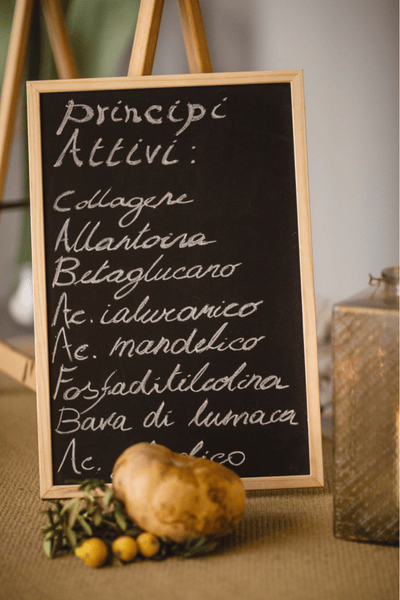 principi
Attivi:
Collagene
Allantoina
Betaglucano
Ac. ialuranico
Ac. mandelico
Fosfaditilcolina
Bava di lumaca
Ac.